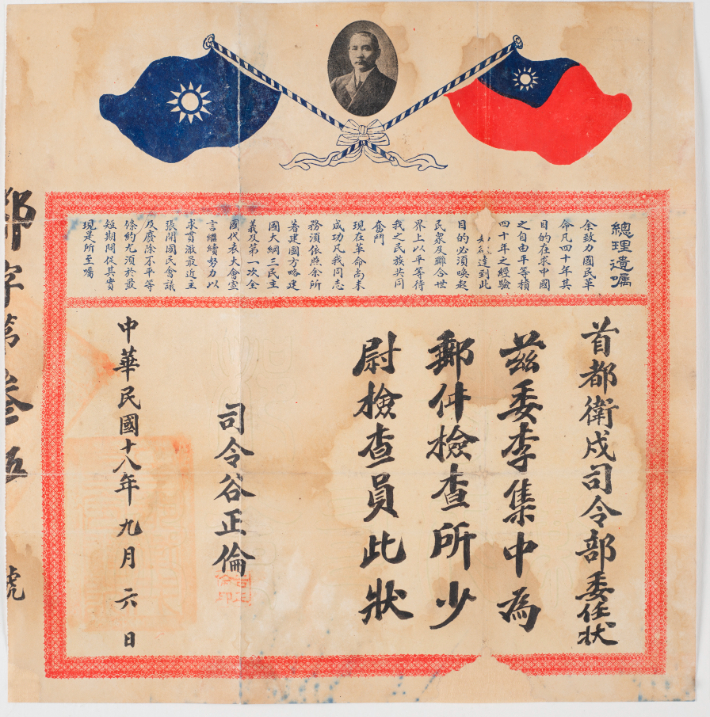 總理遺囑
余致力國民革
命凡四十年其
目的在求中國
之自由平等積
四十年之經驗
達到此
目的必須喚起
民眾及聯合世
界上以平等待
我之民族共同
奮鬥
現在革命尚未
成功凡我同志
務須依照余所
著建國方略建
國大綱三民主
義及第一次全
國代表大會宣
言繼續努力以
求貫澈最近主
張開國民會議
及廢除不平等
條約尤須於最
短期間促其實
現是所至囑
首都衛戍司令部委任狀
茲委李集中為
郵件檢查所少
尉檢查員此狀
司令谷正倫
中華民國十八年九月六日
字第叁伍號